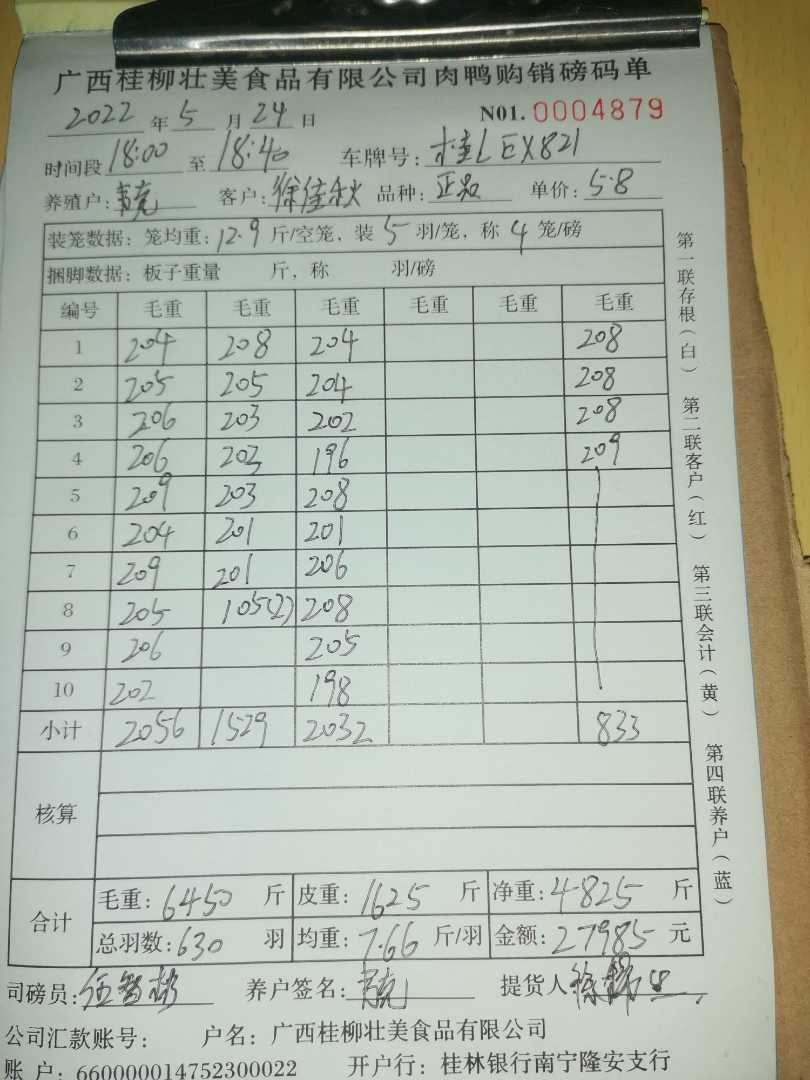 广西桂柳壮美食品有限公司肉鸭购销磅码单
2022 年 5 月 24 日 N01. 0004879
时间段 18:00 至 18:40 车牌号: 桂LEX821
养殖户: 客户: 徐佳秋 品种: 正品 单价: 5.8
装笼数据: 笼均重: 12.9 斤/空笼, 装 5 羽/笼, 称 4 笼/磅
捆脚数据: 板子重量 斤, 称 羽/磅
编号 毛重 毛重 毛重 毛重 毛重 毛重
1 204 208 204 208
2 205 205 204 208
3 206 203 202 208
4 206 203 196 209
5 209 203 208
6 204 201 201
7 209 201 206
8 205 105(2) 208
9 206 205
10 202 198
小计 2056 1529 2032 833
核算
合计
毛重: 6450 斤 皮重: 1625 斤 净重: 4825 斤
总羽数: 630 羽 均重: 7.66 斤/羽 金额: 27985 元
司磅员: 伍智彬 养户签名: 提货人
公司汇款账号: 户名: 广西桂柳壮美食品有限公司
账 户: 660000014752300022 开户行: 桂林银行南宁隆安支行
第一联存根(白)
第二联客户(红)
第三联会计(黄)
第四联养户(蓝)